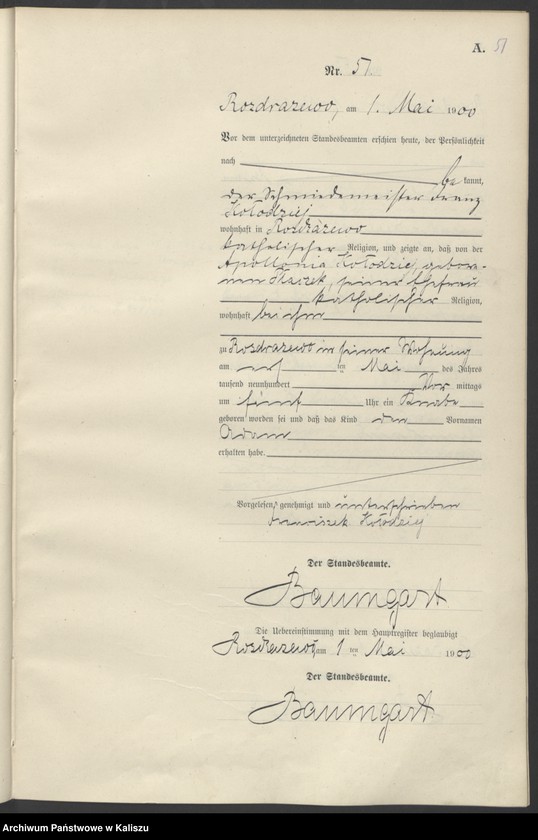 A. 51
Nr. 51.
Rozdrazewo, am 1. Mai 1900
Vor dem unterzeichneten Standesbeamten erschien heute, der Persönlichkeit
nach be kannt,
der Schmiedemeister Franz
Kołodziej
wohnhaft in Rozdrazewo
katholischer Religion, und zeigte an, daß von der
Apollonia Kołodziej, gebor-
nen seiner Ehefrau
katholischer Religion,
wohnhaft bei ihm
zu Rozdrazewo in seiner Wohnung
am ersten Mai des Jahres
tausend neunhundert Vor mittags
um fünf Uhr ein Knabe
geboren worden sei und daß das Kind den Vornamen
Adam
erhalten habe.
Vorgelesen, genehmigt und unterschrieben
Franciszek Kołodziej
Der Standesbeamte.
Baumgart
Die Uebereinstimmung mit dem Hauptregister beglaubigt
Rozdrazewo, am 1 ten Mai 1900
Der Standesbeamte.
Baumgart
Archiwum Państwowe w Kaliszu